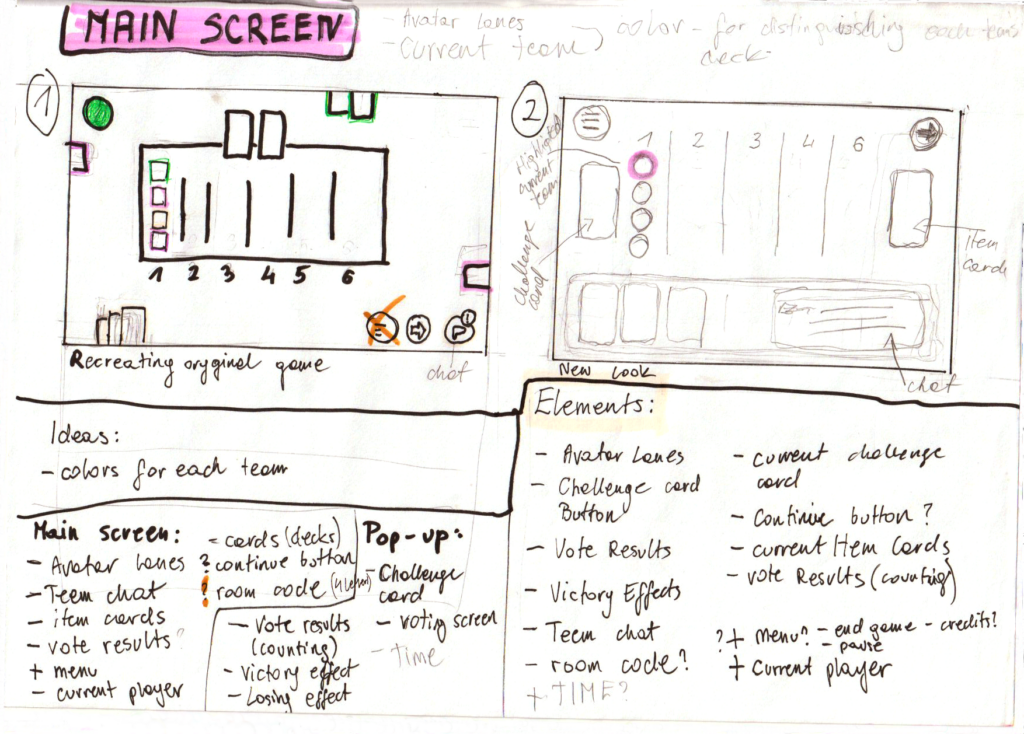 MAIN SCREEN
- Avatar Lanes
- Current team
color - for distinguishing each team's
deck
1
1 2 3 4 5 6
chat
Recreating oryginal game
2
1 2 3 4 6
Highlighted
current
team
challenge
card
Item
cards
chat
New Look
Ideas:
- colors for each team
Main screen:
- Avatar Lanes
- Teem chat
- item cards
- vote results?
+ menu
- current player
- cards (decks)
? continue button
? room code
- Vote results
(counting)
- Victory effect
- Losing effect
Pop-up:
- Challenge
card
- voting screen
- Time
Elements:
- Avatar Lanes
- Challenge card
Button
- Vote Results
- Victory Effects
- Teem chat
- room code?
+ TIME?
- current challenge
card
- Continue button?
- current Item Cards
- vote Results (counting)
?+ menu? - end game - credits?
- pause
+ current player